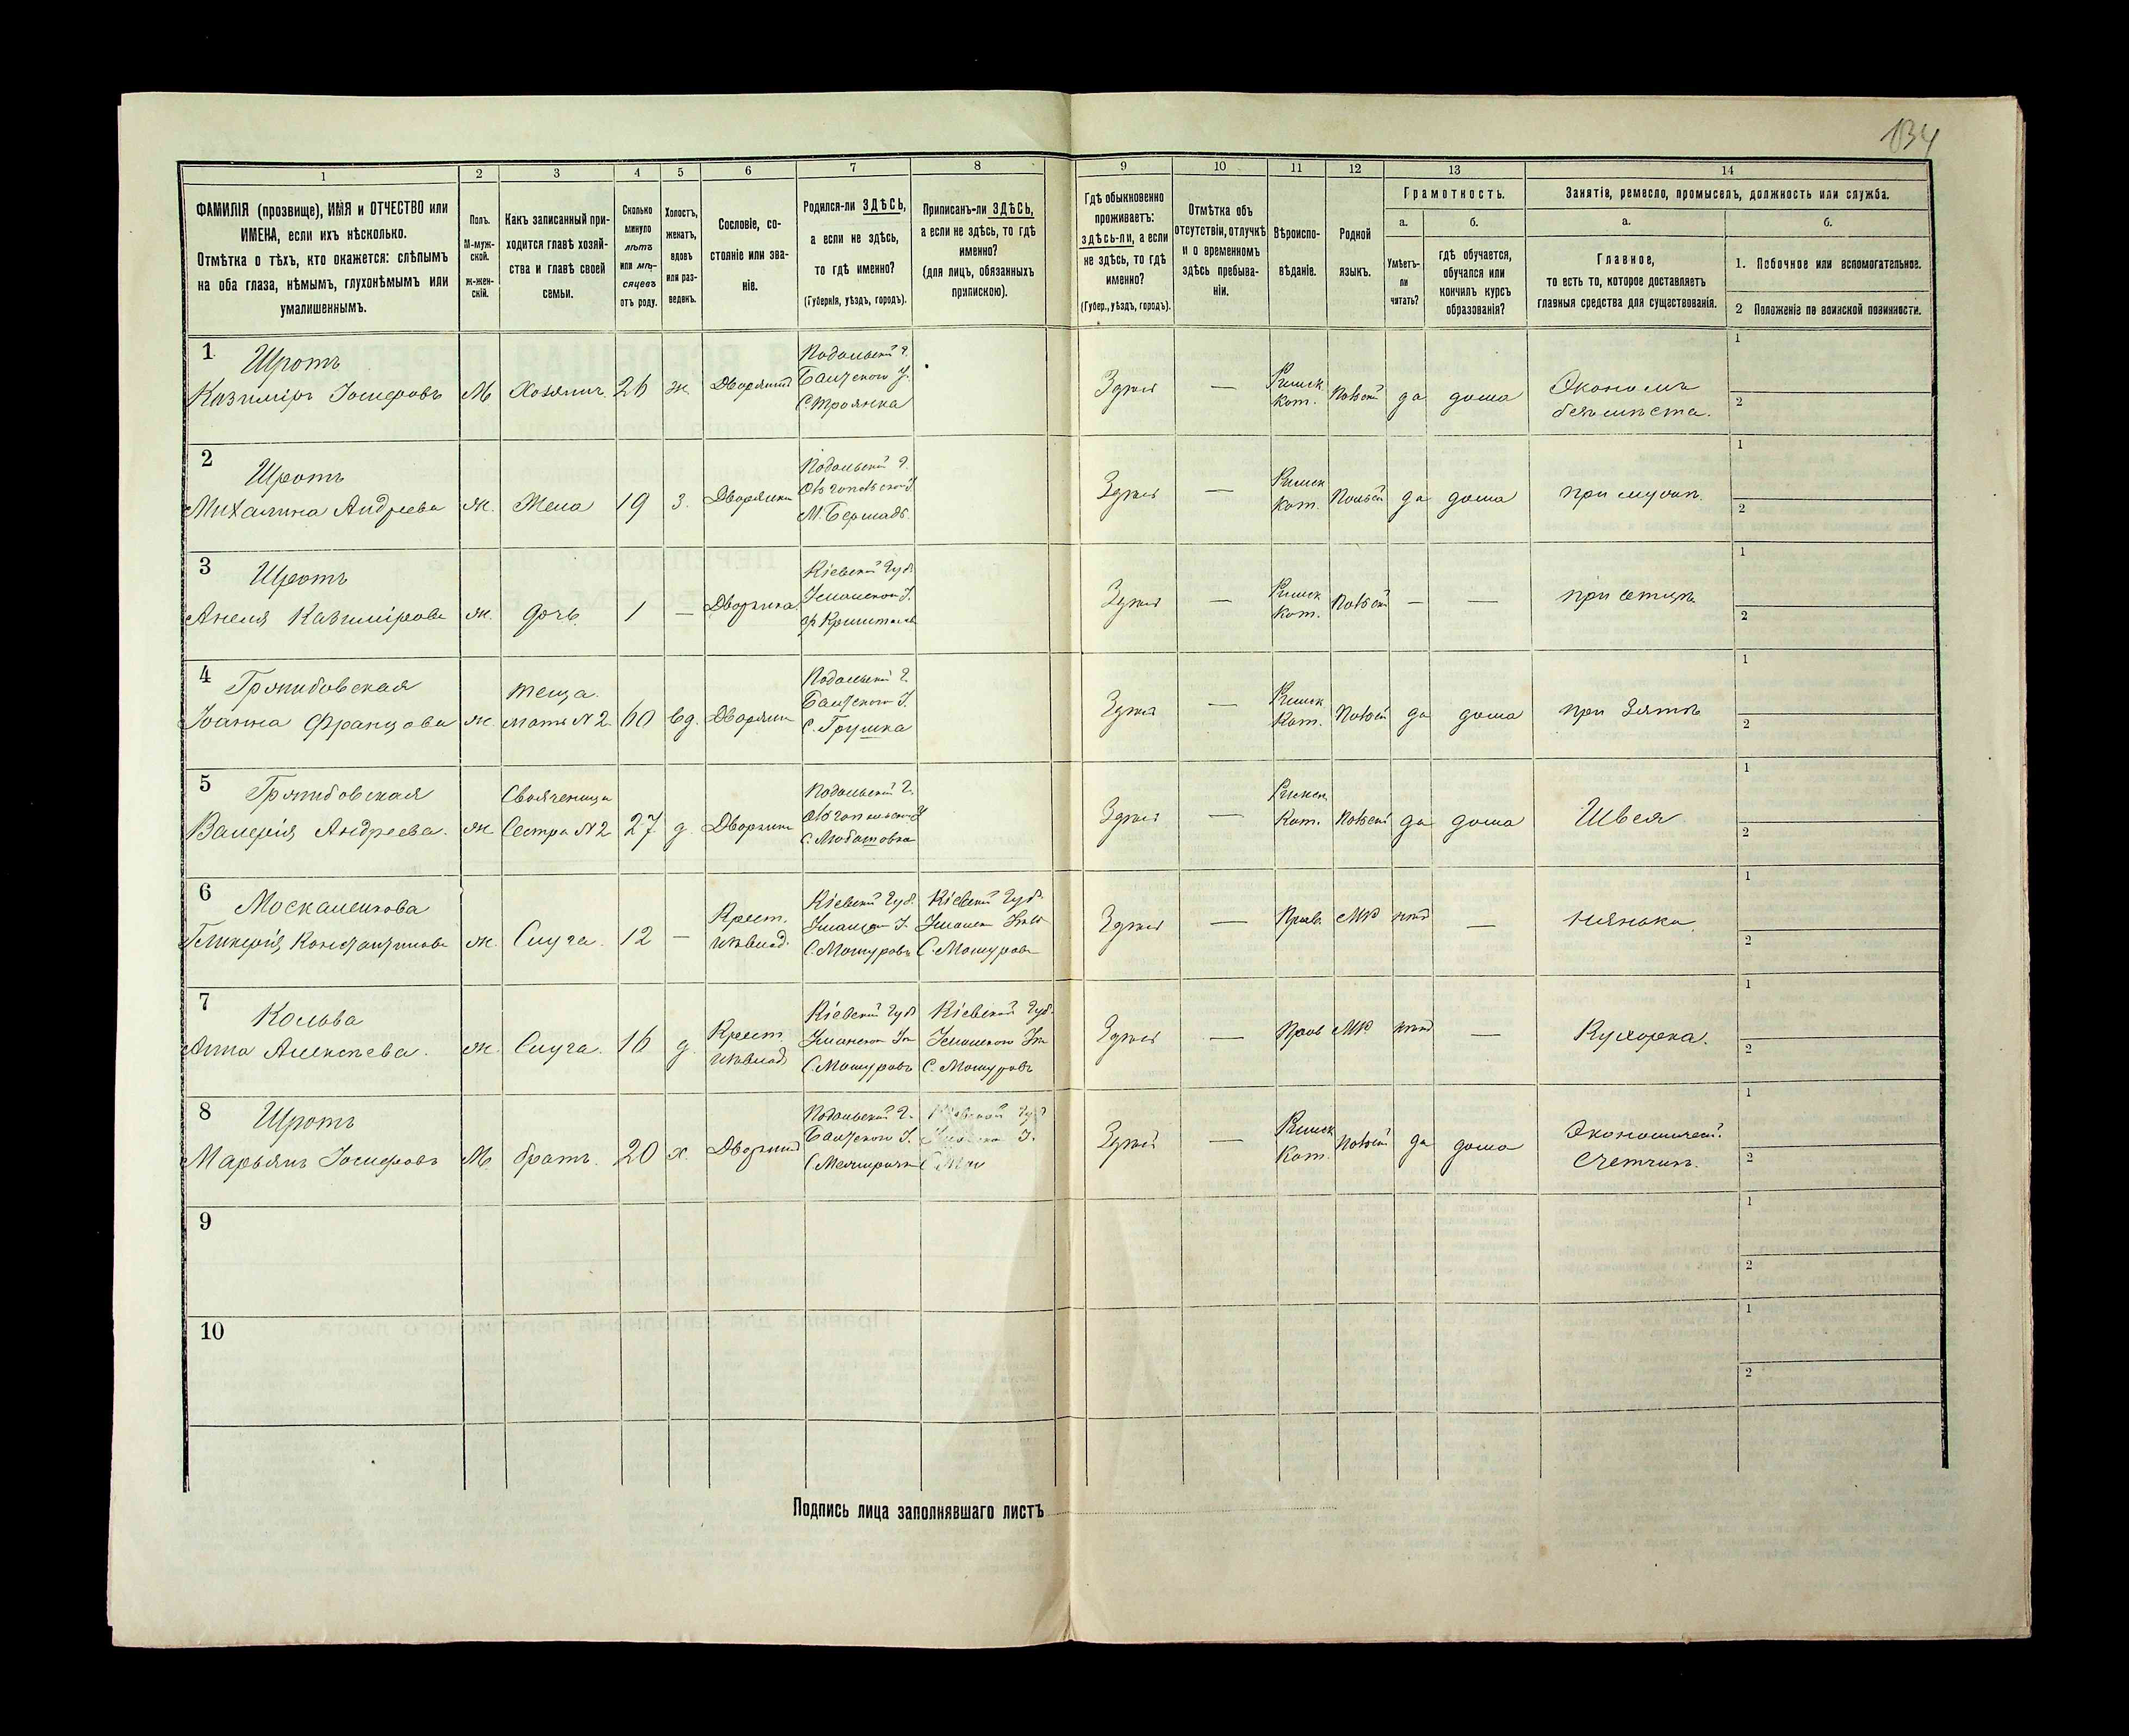 134
1 2 3 4 5 6 7 8 9 10 11 12 13 14
ФАМИЛІЯ (прозвище), ИМЯ и ОТЧЕСТВО или
ИМЕНА, если ихъ нѣсколько.
Отмѣтка о тѣхъ, кто окажется: слѣпымъ
на оба глаза, нѣмымъ, глухонѣмымъ или
умалишеннымъ.
Полъ.
М-муж-
ской.
Ж-жен-
скій.
Какъ записанный при-
ходится главѣ хозяй-
ства и главѣ своей
семьи.
Сколько
минуло
лѣтъ
или мѣ-
сяцевъ
отъ роду.
Холостъ,
женатъ,
вдовъ
или раз-
веденъ.
Сословіе, со-
стояніе или зва-
ніе.
Родился-ли ЗДѢСЬ,
а если не здѣсь,
то гдѣ именно?
(Губернія, уѣздъ, городъ).
Приписанъ-ли ЗДѢСЬ,
а если не здѣсь, то гдѣ
именно?
(для лицъ, обязанныхъ
припискою).
Гдѣ обыкновенно
проживаетъ:
здѣсь-ли, а если
не здѣсь, то гдѣ
именно?
(Губер., уѣздъ, городъ).
Отмѣтка объ
отсутствіи, отлучкѣ
и о временномъ
здѣсь пребыва-
ніи.
Вѣроиспо-
вѣданіе.
Родной
языкъ.
Грамотность.
а.
Умѣетъ-
ли
читать?
б.
гдѣ обучается,
обучался или
кончилъ курсъ
образованія?
Занятіе, ремесло, промыселъ, должность или служба.
а.
Главное,
то есть то, которое доставляетъ
главныя средства для существованія.
б.
1. Побочное или вспомогательное.
2 Положеніе по воинской повинности.
1
Шротъ
Казиміръ Іосифовъ М Хозяинъ 26 ж. Дворянинъ
Подольской г.
Балтского У.
С. Троянка
Здѣсь —
Римск
Кат.
Польскій да дома
Экономъ
безъ мѣста.
1
2
2
Шротъ
Михалина Андреева ж. Жена 19 з. Дворянка
Подольской г.
Ольгопольской У.
М. Бершадь
Здѣсь —
Римск
Кат.
Польскій да дома при мужѣ.
1
2
3
Шротъ
Анеля Казимірова ж. дочь 1 — Дворянка
Кіевской Губ.
Уманского У.
Здѣсь —
Римск
Кат.
Польскій — — при отцѣ
1
2
4
Іоанна Францова ж.
теща.
мать N 2. 60 вд. Дворянка
Подольской г.
Балтского У.
с. Грушка
Здѣсь —
Римск
Кат.
Польскій да дома при Зятѣ
1
2
5
Валерія Андреева. ж
Свояченица
Сестра N 2 27 д. Дворянка
Подольской г.
Ольгопольской У
Здѣсь —
Римск.
Кат.
Польскій да дома Швея
1
2
6
Москаленкова
Гликерія Константинова ж. Слуга. 12 —
Крест.
Кіевской Губ.
Уманскаго У.
С. Машуровъ
Кіевской Губ.
С. Машуровъ
Здѣсь — Прав. МР нѣтъ — нянька.
1
2
7
Кольва
Анна Алексѣева. ж. Слуга. 16 д.
Крест.
Кіевской Губ
С. Машуровъ
Кіевской Губ.
С. Машуровъ
Здѣсь — Прав МР нѣтъ — Кухорка.
1
2
8
Шротъ
Марьянъ Іосифовъ М. братъ. 20 х. Дворянинъ
Подольской г.
Балтского У.
Здѣсь —
Римск
Кат.
Польскій да дома
Экономическ.
Счетчикъ.
1
2
9
1
2
10
1
2
Подпись лица заполнявшаго листъ